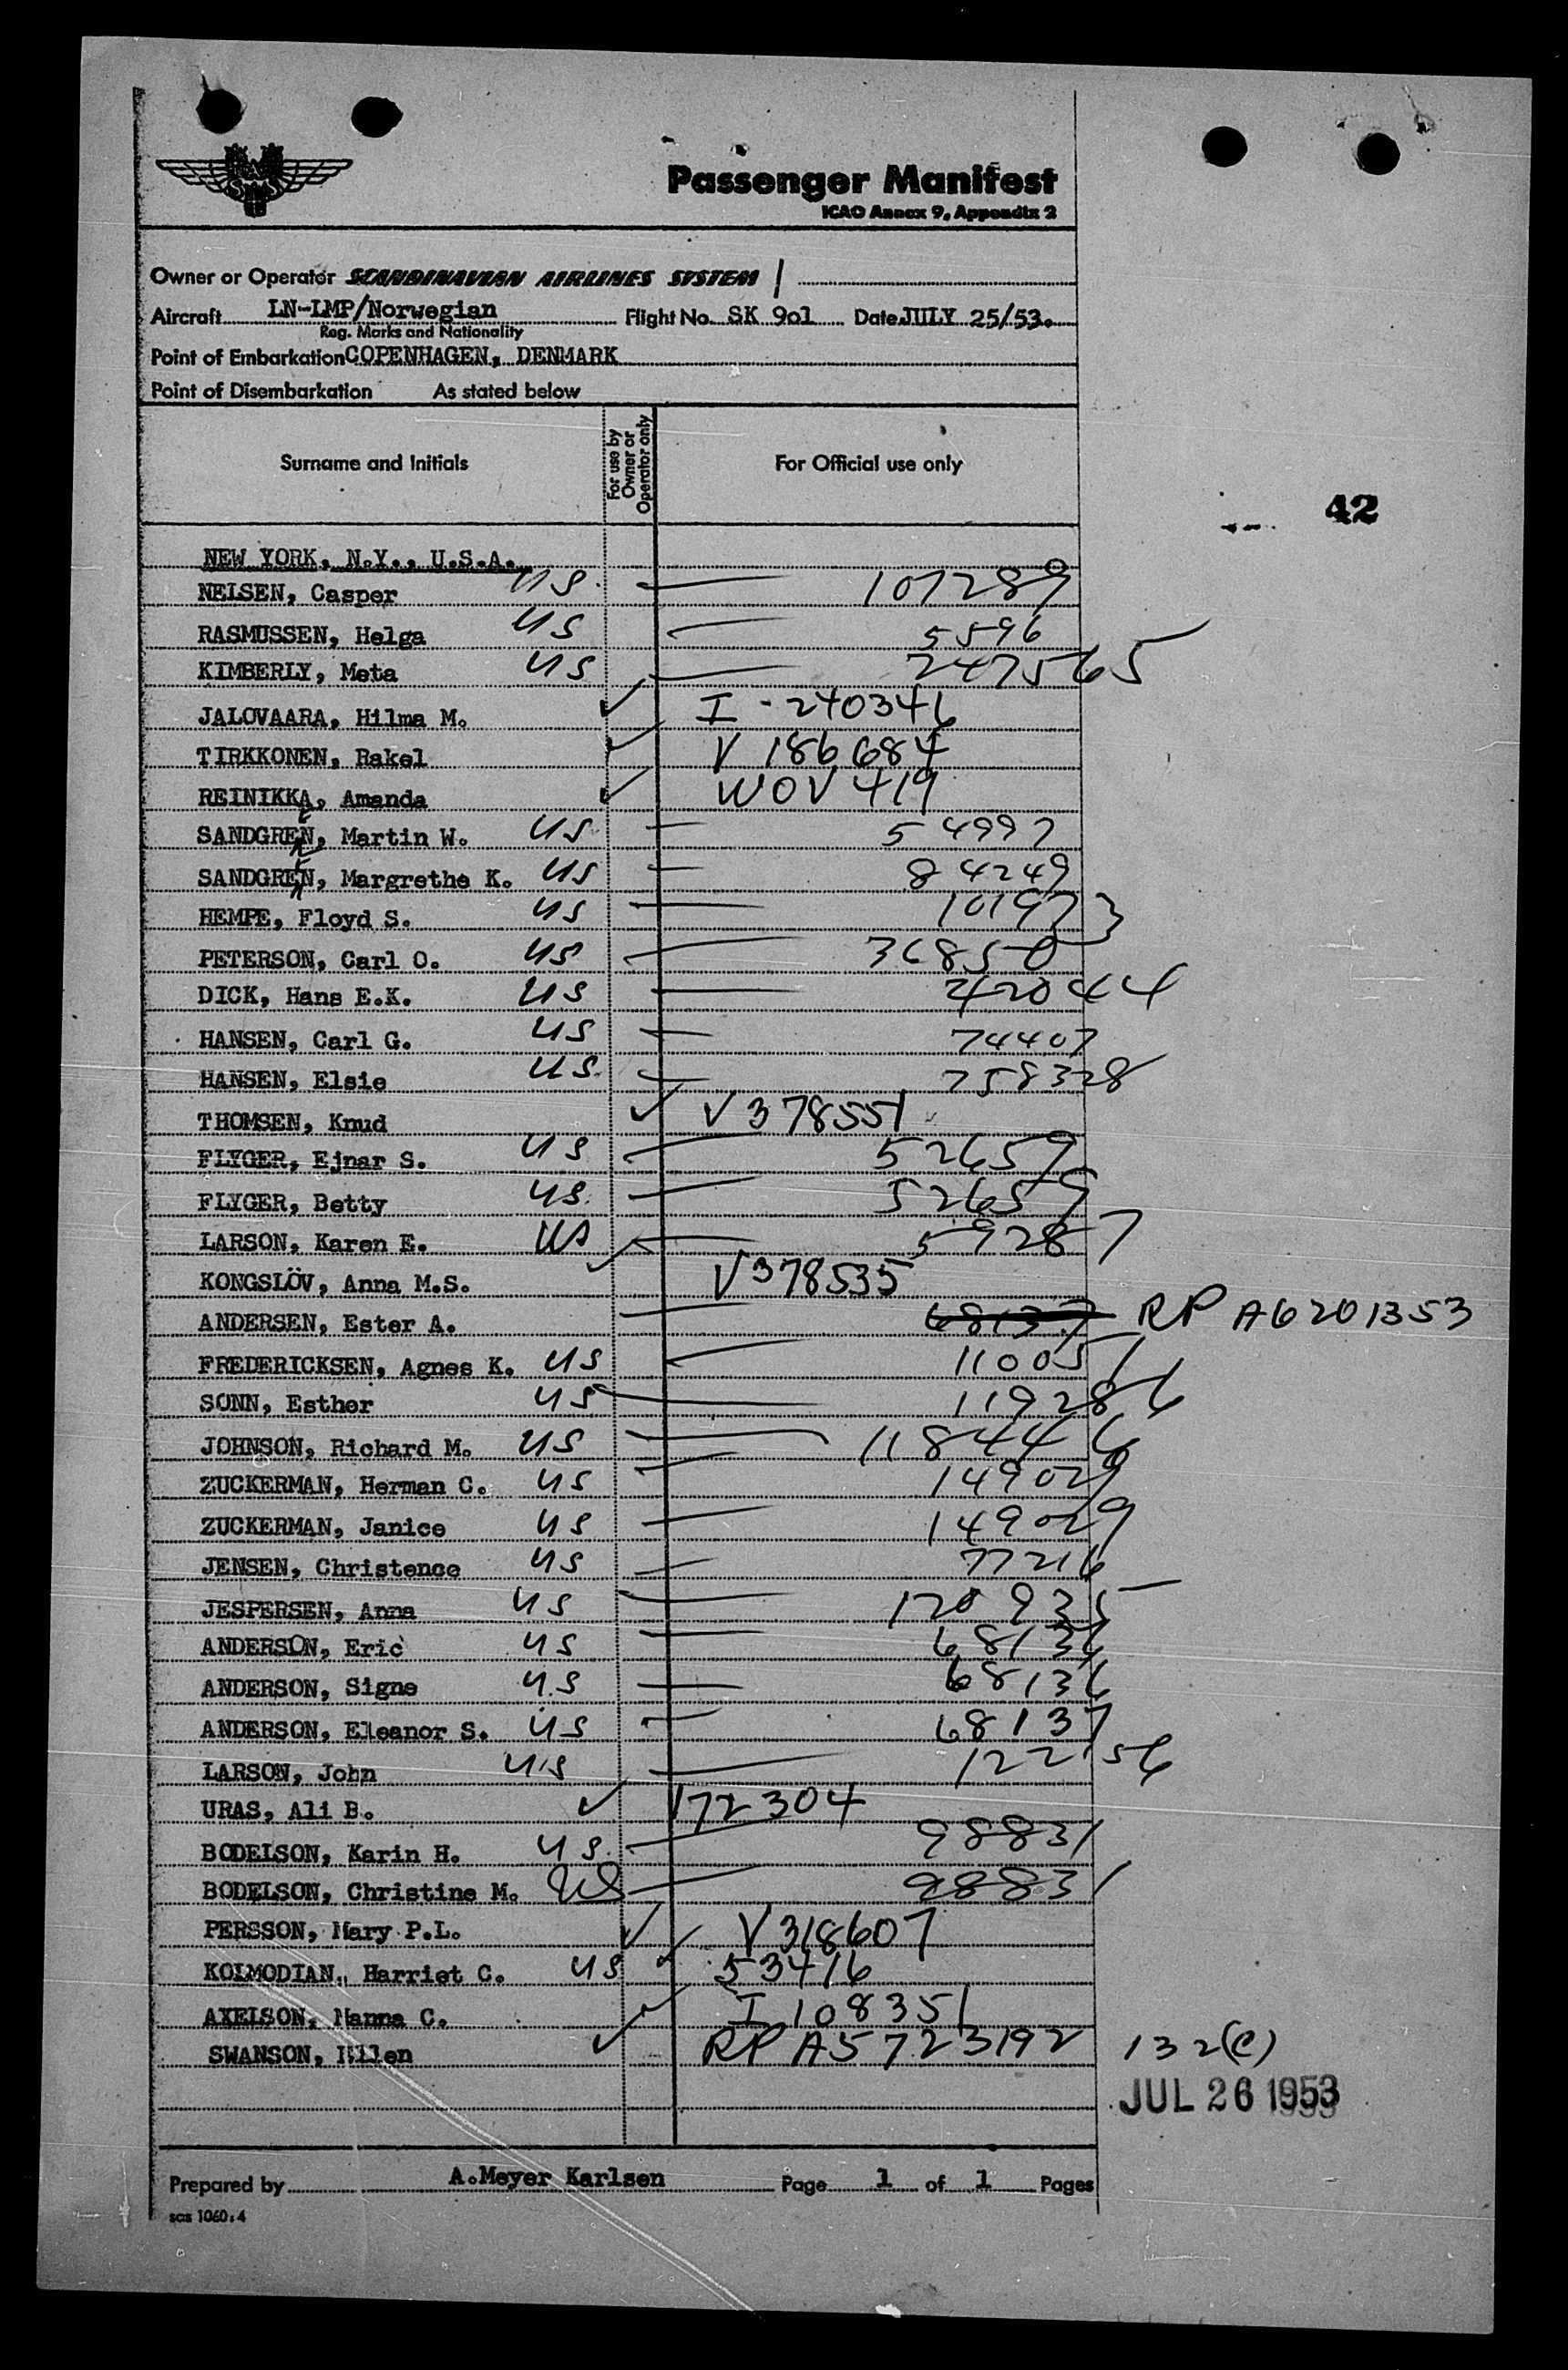 Passenger Manifest
ICAO Annex 9, Appendix 2
Owner or Operator SCANDINAVIAN AIRLINES SYSTEM
Aircraft LN-LMP/Norwegian Flight No. SK 901 Date JULY 25/53.
Reg. Marks and Nationality
Point of Embarkation COPENHAGEN, DENMARK
Point of Disembarkation As stated below
Surname and Initials For use by Owner or Operator only For Official use only
42
NEW YORK, N.Y., U.S.A.
NELSEN, Casper US 107289
RASMUSSEN, Helga US 5596
KIMBERLY, Meta US 247565
JALOVAARA, Hilma M. I-240346
TIRKKONEN, Rakel V 186684
REINIKKA, Amanda WOV 419
SANDGREN, Martin W. US 54997
SANDGREN, Margrethe K. US 84249
HEMPE, Floyd S. US 101973
PETERSON, Carl O. US 36850
DICK, Hans E.K. US 42044
HANSEN, Carl G. US 74407
HANSEN, Elsie US 758328
THOMSEN, Knud V 378551
FLYGER, Ejnar S. US 52659
FLYGER, Betty US 52659
LARSON, Karen E. US 59287
KONGSLÖV, Anna M.S. V378535
ANDERSEN, Ester A. 68137 RP A6201353
FREDERICKSEN, Agnes K. US 110051
SONN, Esther US 119286
JOHNSON, Richard M. US 118446
ZUCKERMAN, Herman C. US 149029
ZUCKERMAN, Janice US 149029
JENSEN, Christence US 77216
JESPERSEN, Anna US 120935
ANDERSON, Eric US 68136
ANDERSON, Signe U.S 68136
ANDERSON, Eleanor S. US 68137
LARSON, John US 122156
URAS, Ali B. V72304
BODELSON, Karin H. US 98831
BODELSON, Christine M. US 98831
PERSSON, Mary P.L. V318607
KOLMODIAN, Harriet C. US 53416
AXELSON, Nanna C. I 108351
SWANSON, Ellen RP A5723192 132(c)
JUL 26 1953
Prepared by A.Meyer Karlsen Page 1 of 1 Pages
sas 1060:4